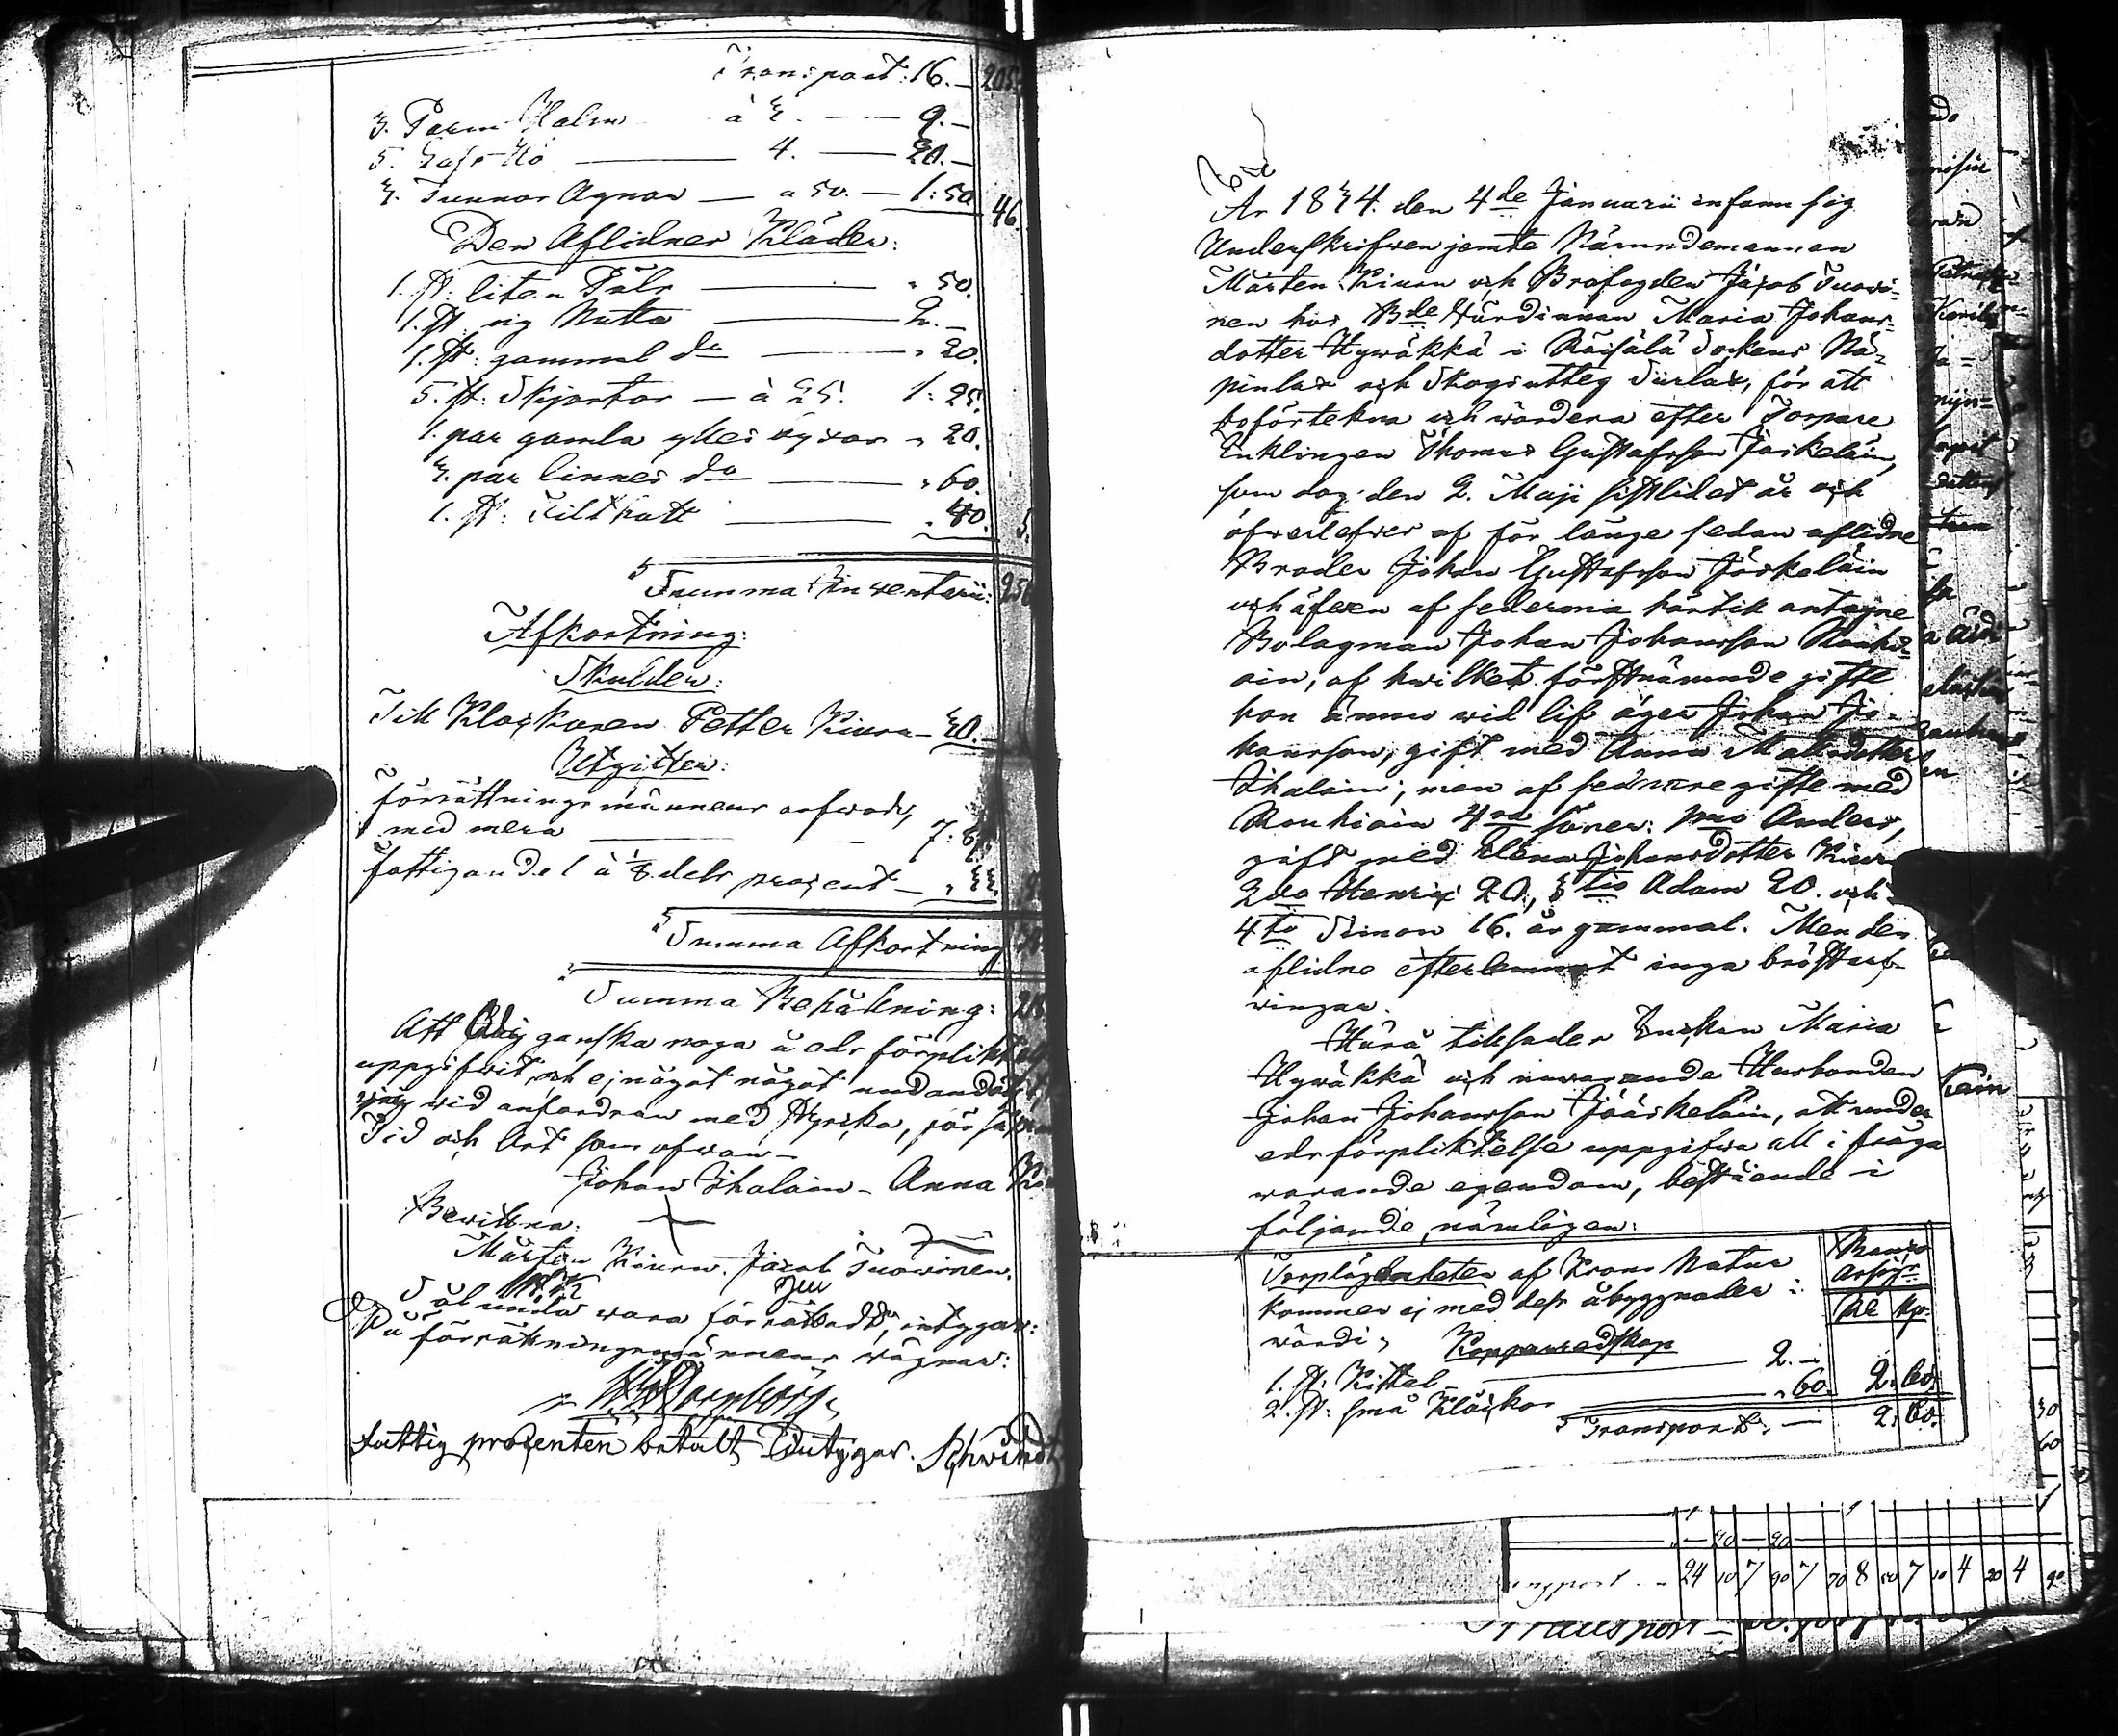 Transport: 16. — 205
3. Parm Halm à 3. — 9. —
5. Lass Hö — 4. — 20. —
3. Tunnor Agnar — a 50. — 1: 50 46.
Den Aflidnes Kläder:
1. st: liten Päls — " 50.
1. st: ny Mutta — 2. —
1. st: gammal do — " 20.
5. st: Skjortor — à 25. 1: 25.
1. par gamla ylles byxor " 20.
3. par linnes do — " 60.
1. st: Filt hatt — " 40. 5.
Summa Inventarii: 250
Afkortning:
Skulder:
Till Klockaren Petter Kiuru — 30. —
Utgifter:
Förrättningsmännens arfwode,
med mera — 7:
fattigandel à 1/8 dels procent — " 33.
Summa Afkortning
Summa Behållning:
Att ganska noga å eds förpliktelse
uppgifwit, och ej något något undandöljt,
wid anfordran med styrka, försäkra
Tid och Ort som ofwan —
Johan Ihalain — Anna
Bevittna:
Mårten Kiuru. Jacob Tuowinen.
Sålunda wara förrättadt, intygar:
På förrättningsmännens wägnar:
fattig procenten betalt Intygar. Schwindt
År 1834. den 4de Januarii infann sig
Underskrifwen jemte Nämndemannen
Mårten Kiuru och Brofogden Jacob Tuowi-
nen hos Bde Wärdinnan Maria Johans-
dotter Hywäkkä i Räisälä Sockens Nä-
pinlax och Skogsutteg Siirlax, för att
uppförtekna och wärdera efter Torpare
Enklingen Thomas Gustafsson Jäskeläin,
som dog den 2. Maji sistlidet år och
öfwerlefwes af för länge sedan aflidne
Broder Johan Gustafsson Jäskeläin
och äfwen af sedermera härtil antagne
Bolagman Johan Johansson Rouhi-
ain, af hwilket förstnämnde gifte
hon ännu wid lif äger Johan Jo-
hansson, gift med Anna Matsdotter
Ihalain; men af sednare gifte med
Rouhiain 4ra söner: 1mo Anders,
gift med Elena Johansdotter Kiuru
2do Henric 20, 3tio Adam 20. och
4to Simon 16. år gammal. Men den
aflidne efterlemnat inga bröstarf-
wingar.
Härå tillsades Enckan Maria
Hywäkkä och nuwarande Husbonden
Johan Johansson Jääskeläin, att under
eds förpliktelse uppgifwa all i fråga
warande egendom, bestående i
följande, nämligen:
Torplägenheten af Krono Natur
kommer ej med dess åbyggnader i
wärdi; Kopparredskap
Banco
Assig:
Rl Kp.
1. st: Kittel — 2. —
2. st: små Kläckor " 60. 2. 60.
Transport: — 2. 60.
24 10 7 90 7 70 8 50 7 10 4 20 4 90
Transport